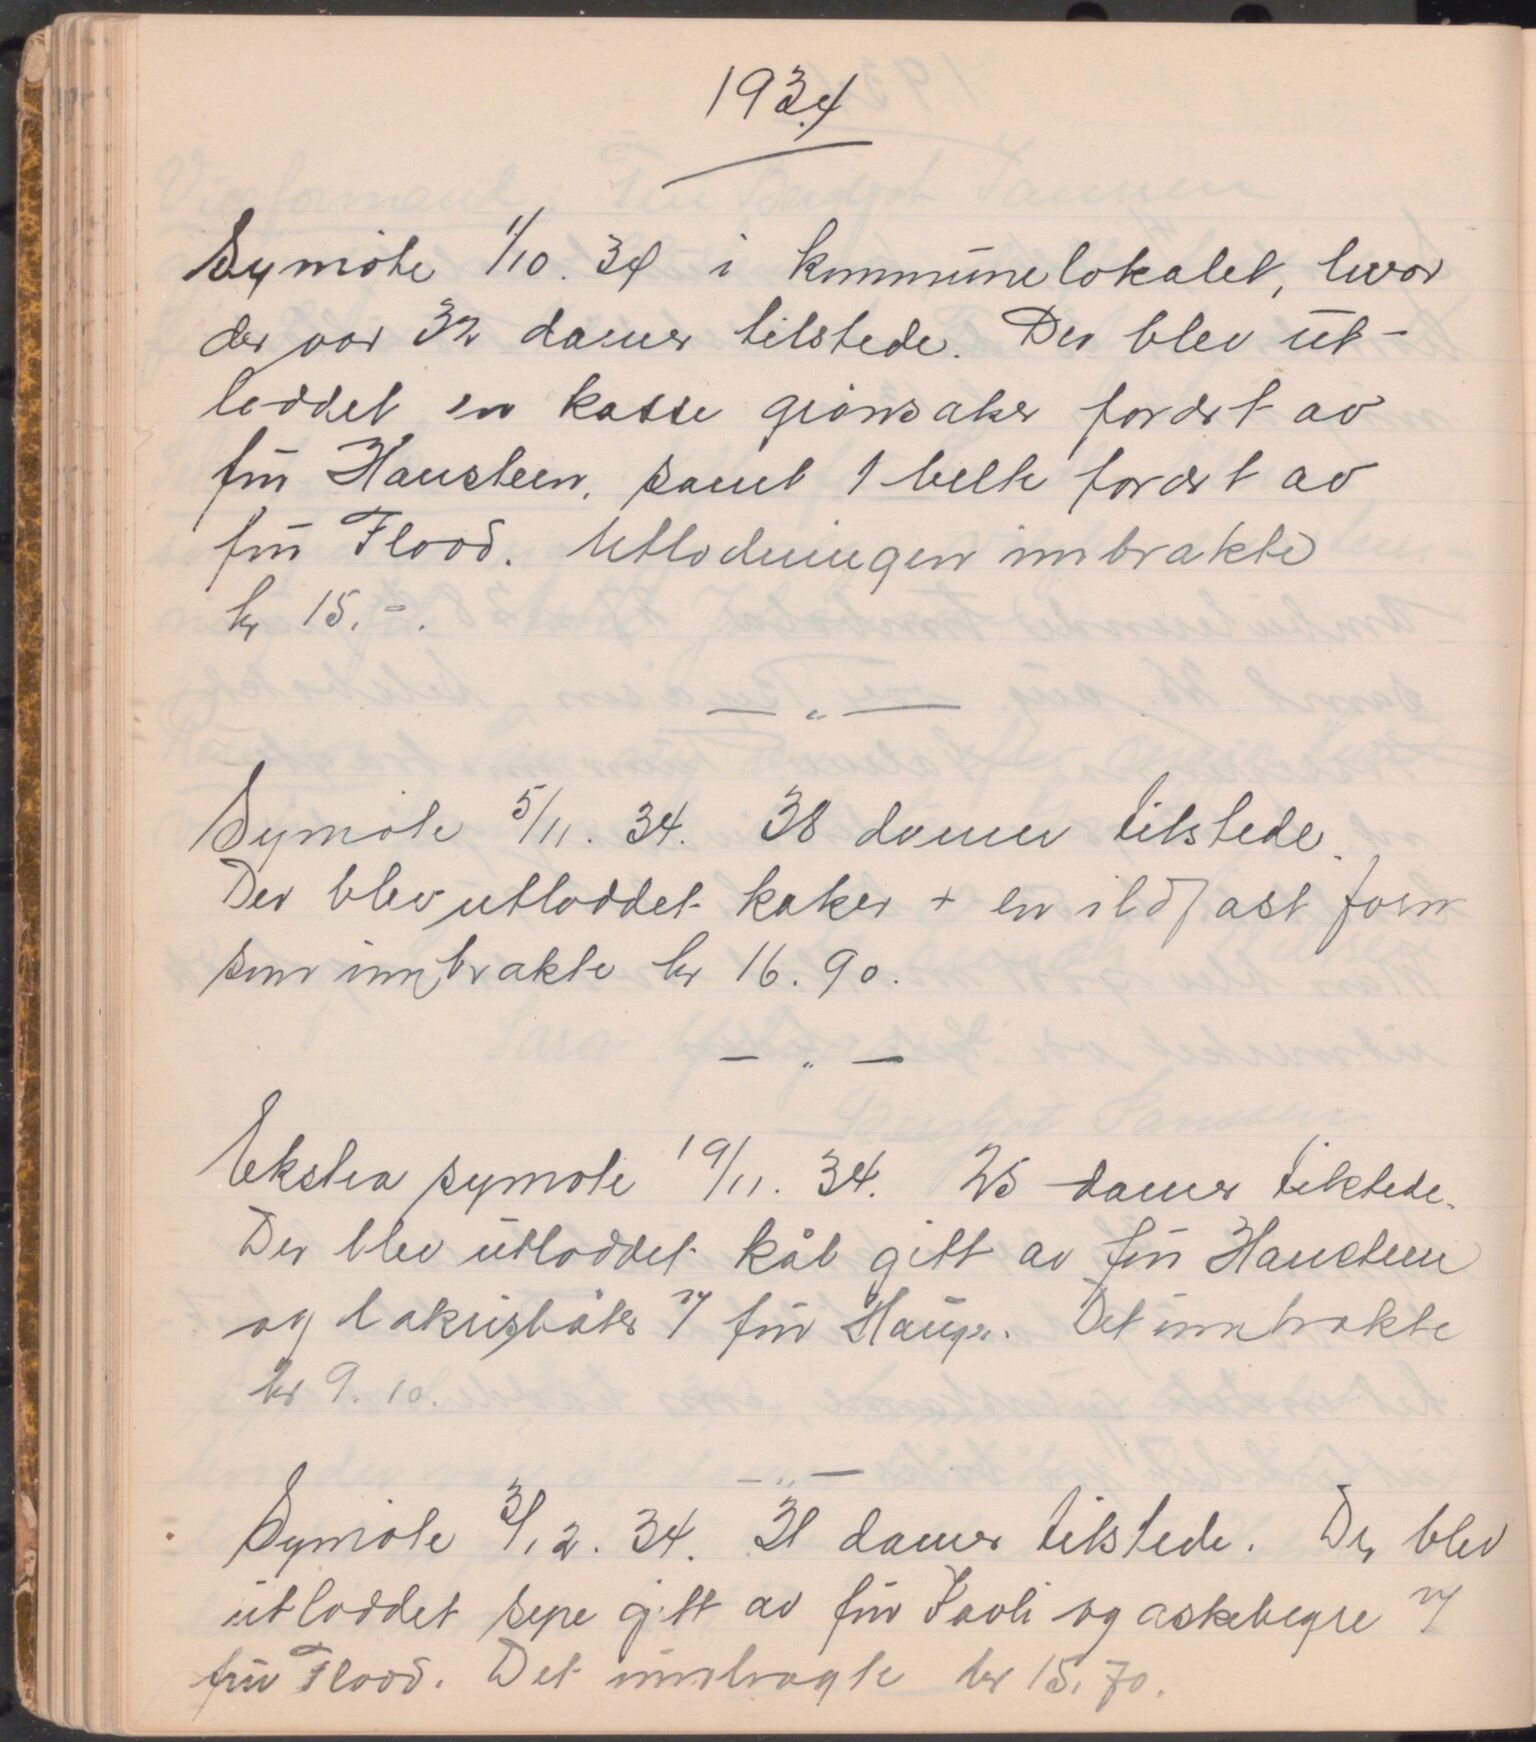 1934
Symöte 1/10. 34 i kommünelokalet, hvor
der var 32 damer tilstede. Der blev üt-
loddet en kasse grönsaker forært av
frü Hansteen, samt 1 belte forært av
frü Flood. Utlodningen innbrakte
kr 15.-.
— " —
Symöte 5/11. 34. 38 damer tilstede.
Der blev utloddet kaker + en ildfast form
som innbrakte kr 16.90.
— " —
Ekstra symöte 19/11. 34. 25 damer tilstede.
Der blev ütloddet kål gitt av frü Hansteen
og lakrisbåter af frü Haugr. Det innbrakte
kr 9.10.
— " —
Symöte 3/12. 34. 31 damer tilstede. Der blev
ütloddet sepe gitt av frü Paoli og askebegre af
frü Flood. Det innbragte kr 15,70.